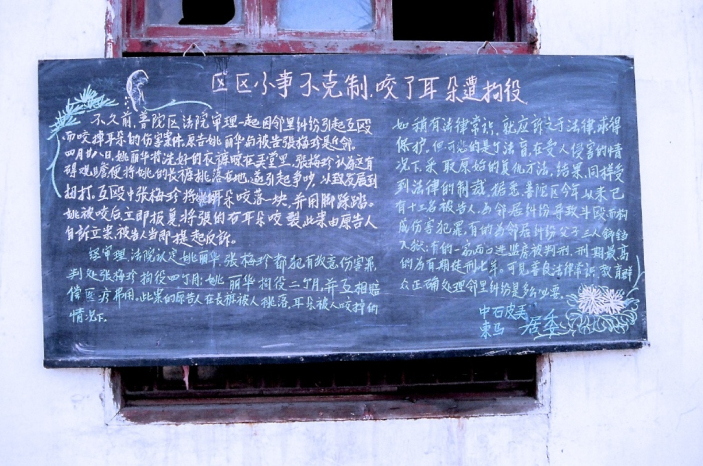 区区小事不克制,咬了耳朵遭拘役
不久前,普陀区法院审理一起因邻里纠纷引起互殴
而咬掉耳朵的伤害案件。原告姚丽华与被告张梅珍是近邻。
四月廿八日,姚丽华将洗好的长裤晾在天井里,张梅珍认为这有
碍观瞻,便将姚的长裤挑落在地,遂引起争吵,以致发展到
扭打。互殴中张梅珍将姚耳朵咬落一块,并用脚踩踏。
姚被咬后立即报复将张的右耳朵咬裂,此案由原告人
自诉立案,被告人当即提起反诉。
经审理,法院认定姚丽华、张梅珍都犯有故意伤害罪,
判处张梅珍拘役四个月;姚丽华拘役二个月,并互相赔
偿医疗费用。此案的原告人在长裤被人挑落,耳朵被人咬掉的
情况下,
如稍有法律常识,就应诉之于法律,求得
保护,但可悲的是个法盲,在受人侵害的情
况下采取原始的复仇方法,结果,同样受
到法律的制裁。据悉,普陀区今年以来已
有十三名被告人,为邻居纠纷并致斗殴而构
成伤害犯罪,有的为邻居纠纷父子三人锒铛
入狱;有的一家两口进监房被判刑,刑期最高
的为有期徒刑七年,可见普及法律常识,教育群
众正确处理邻里纠纷是多么必要。
中石皮弄
東马 居委